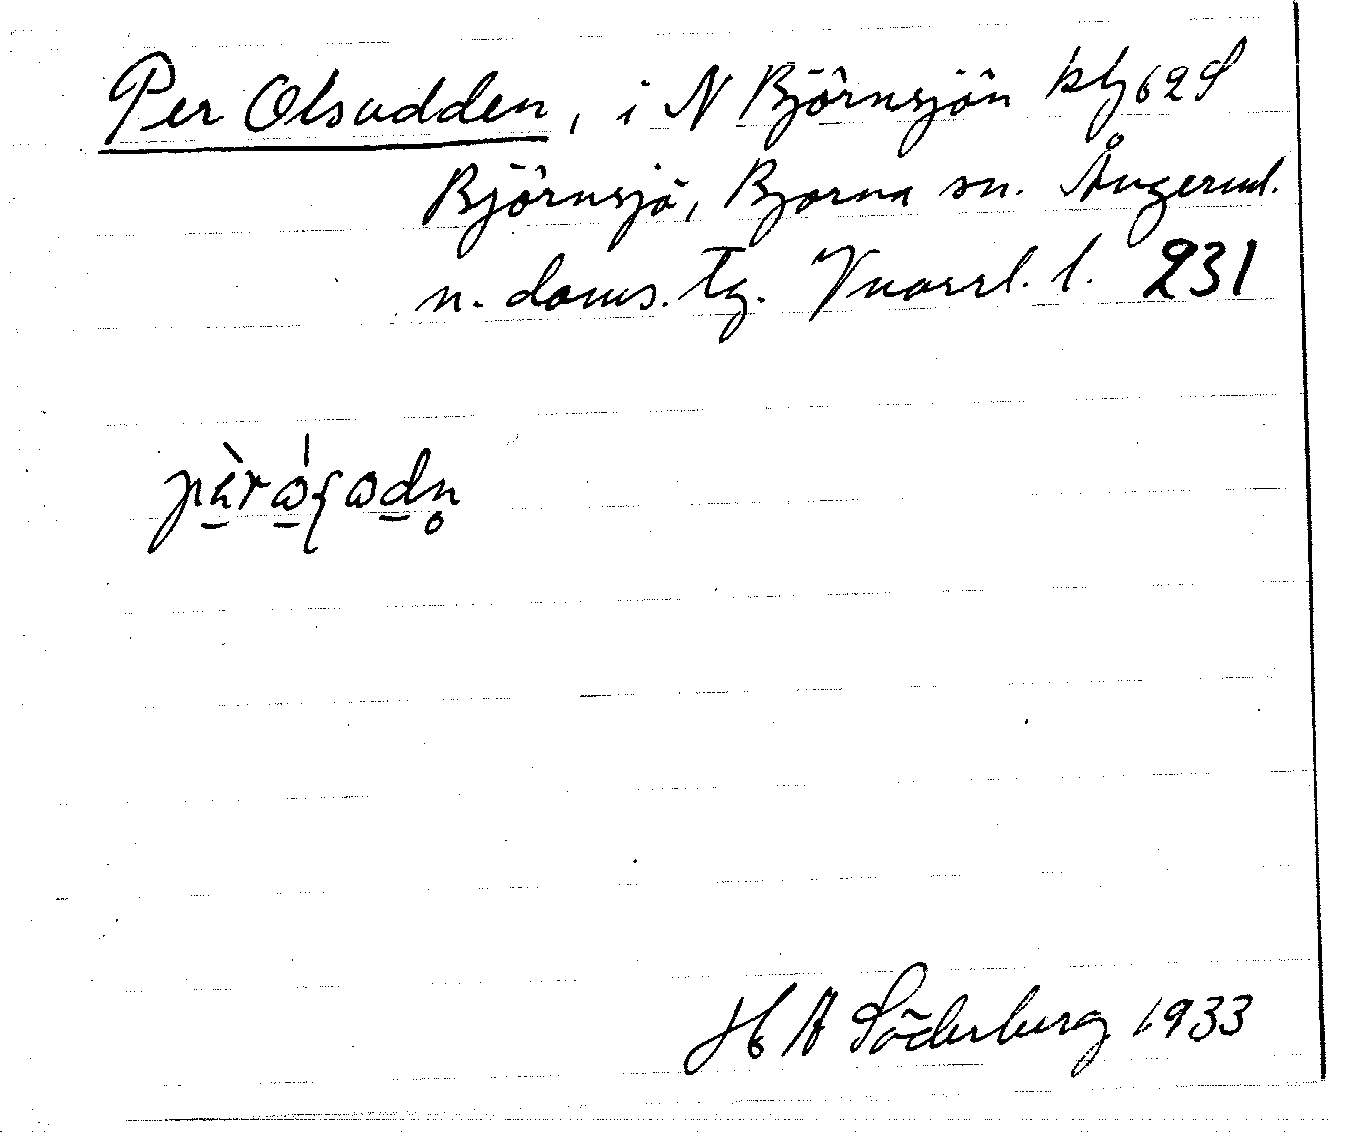 Per Olsudden, i N Björnsjön kbl 62S
Björnsjö, Björna sn. Ångerml.
n. doms. tg. Vuorrl. l. 231
H A Söderberg 1933